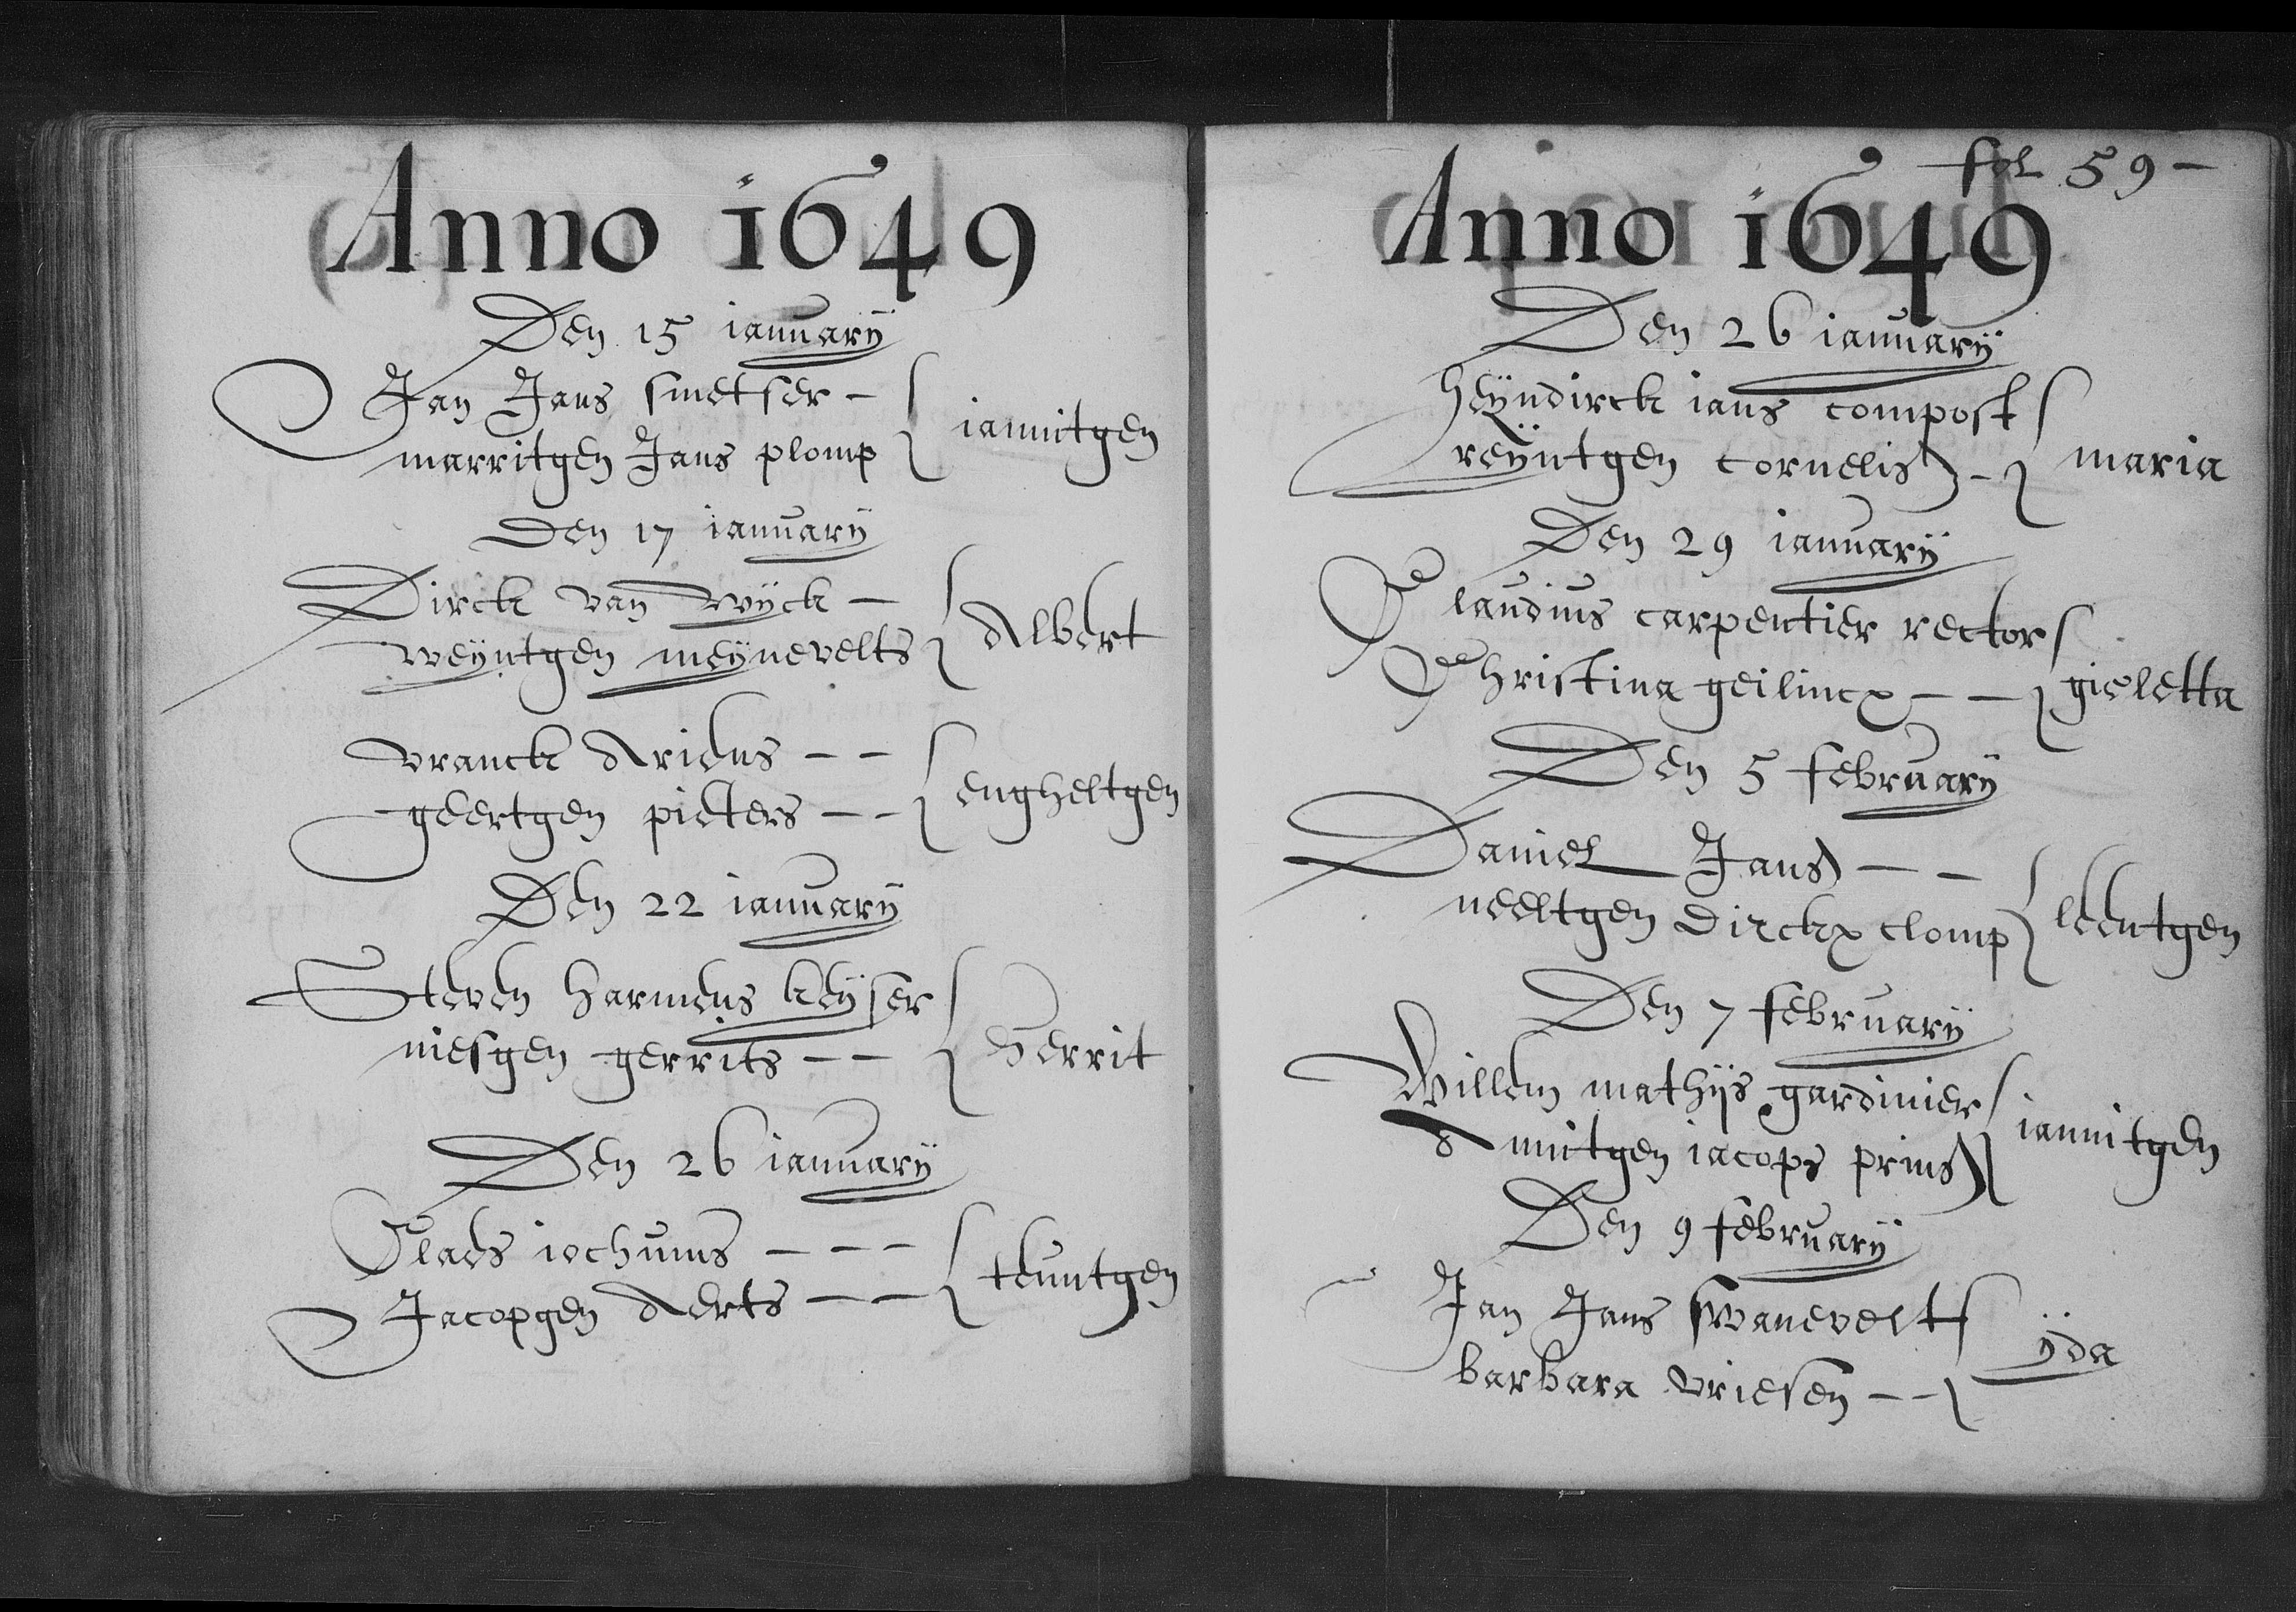 Anno 1649
Den 15 january
Jan Jans smetser -
marritgen Jans plomp
iannitgen
Den 17 january
Dirck van wyck -
weyntgen meynevelts
Albert
vranck Ariens - -
geertgen pieters - -
engheltgen
Den 22 january
Steven harmens keyser
niesgen gerrits - -
Gerrit
Den 26 ianuary
Claes iochums - - -
Jacopgen Aerts - -
teuntgen
fol 59 -
Anno 1649
Den 26 ianuarÿ
heÿndirck ians compost
reÿntgen cornelis -
maria
Den 29 ianuarÿ
Claudius carpentier rector
Christina geilincx - -
gieletta
Den 5 februarÿ
Daniel Jans - -
neeltgen Dirckx clomp
leentgen
Den 7 februarÿ
Willem mathijs gardinier
Annitgen iacops prins
iannitgen
Den 9 februarÿ
Jan Jans swanevelt
barbara vriesen - -
ÿda